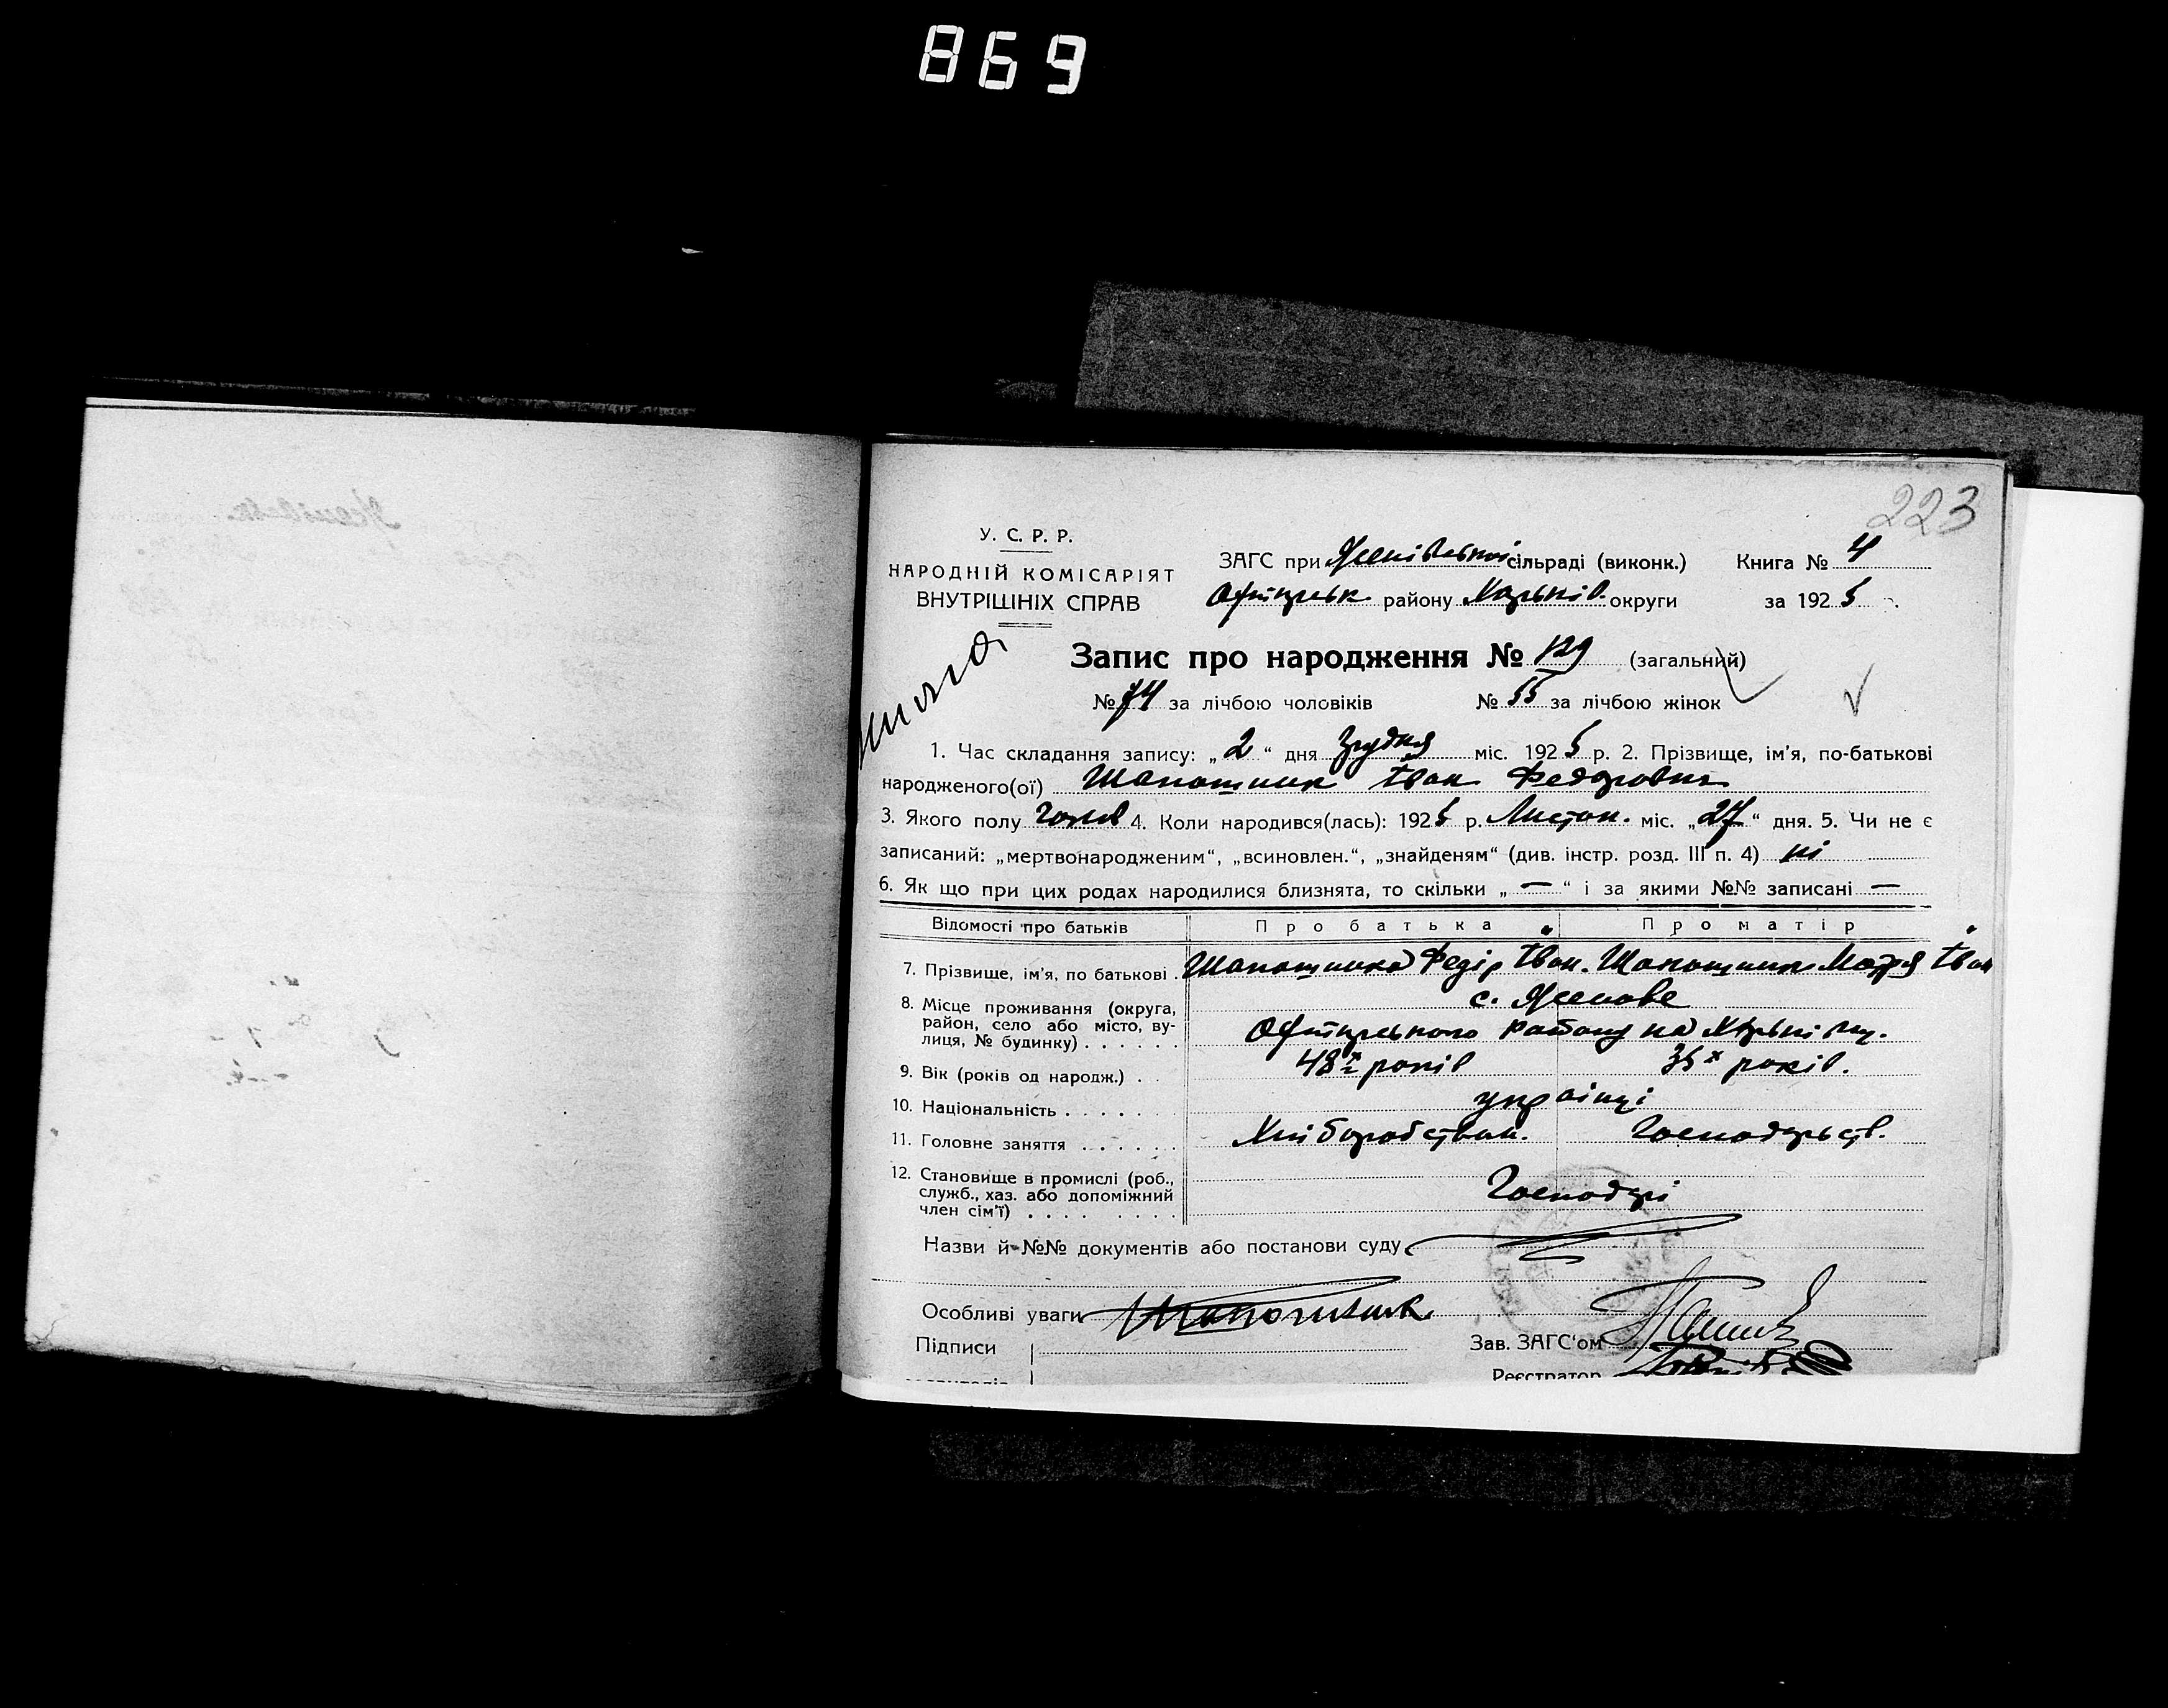 869
223
У. С. Р. Р.
НАРОДНІЙ КОМІСАРІЯТ
ВНУТРІШНІХ СПРАВ
ЗАГС при сільраді (виконк.) Книга № 4
району Харьків. округи за 1925 р.
Запис про народження № 129 (загальний)
№ 74 за лічбою чоловіків № 55 за лічбою жінок
1. Час складання запису: „2“ дня Грудня міс. 1925 р. 2. Прізвище, ім'я, по-батькові
народженого(ої) Шапошник Іван Федорович
3. Якого полу чолов 4. Коли народився(лась): 1925 р. Листоп. міс. „27“ дня. 5. Чи не є
записаний: „мертвонародженим“, „всиновлен.“, „знайденям“ (див. інстр. розд. III п. 4) ні
6. Як що при цих родах народилися близнята, то скільки „—“ і за якими №№ записані —
Відомості про батьків Про батька Про матір
7. Прізвище, ім'я, по батькові . Шапошника Федір Іван. Шапошник Мотря Іван
8. Місце проживання (округа, район, село або місто, вулиця, № будинку) . . . . . .
с.
району на
9. Вік (років од народж.) . . 48 років 35 х років.
10. Національність . . . . . українці
11. Головне заняття . . . . . . Хліборобством. Господарств.
12. Становище в промислі (роб.,
служб., хаз. або допоміжний
член сім'ї) . . . . . . . . . Господарі
Назви й №№ документів або постанови суду
Особливі уваги
Підписи Зав. ЗАГС'ом
Реєстратор